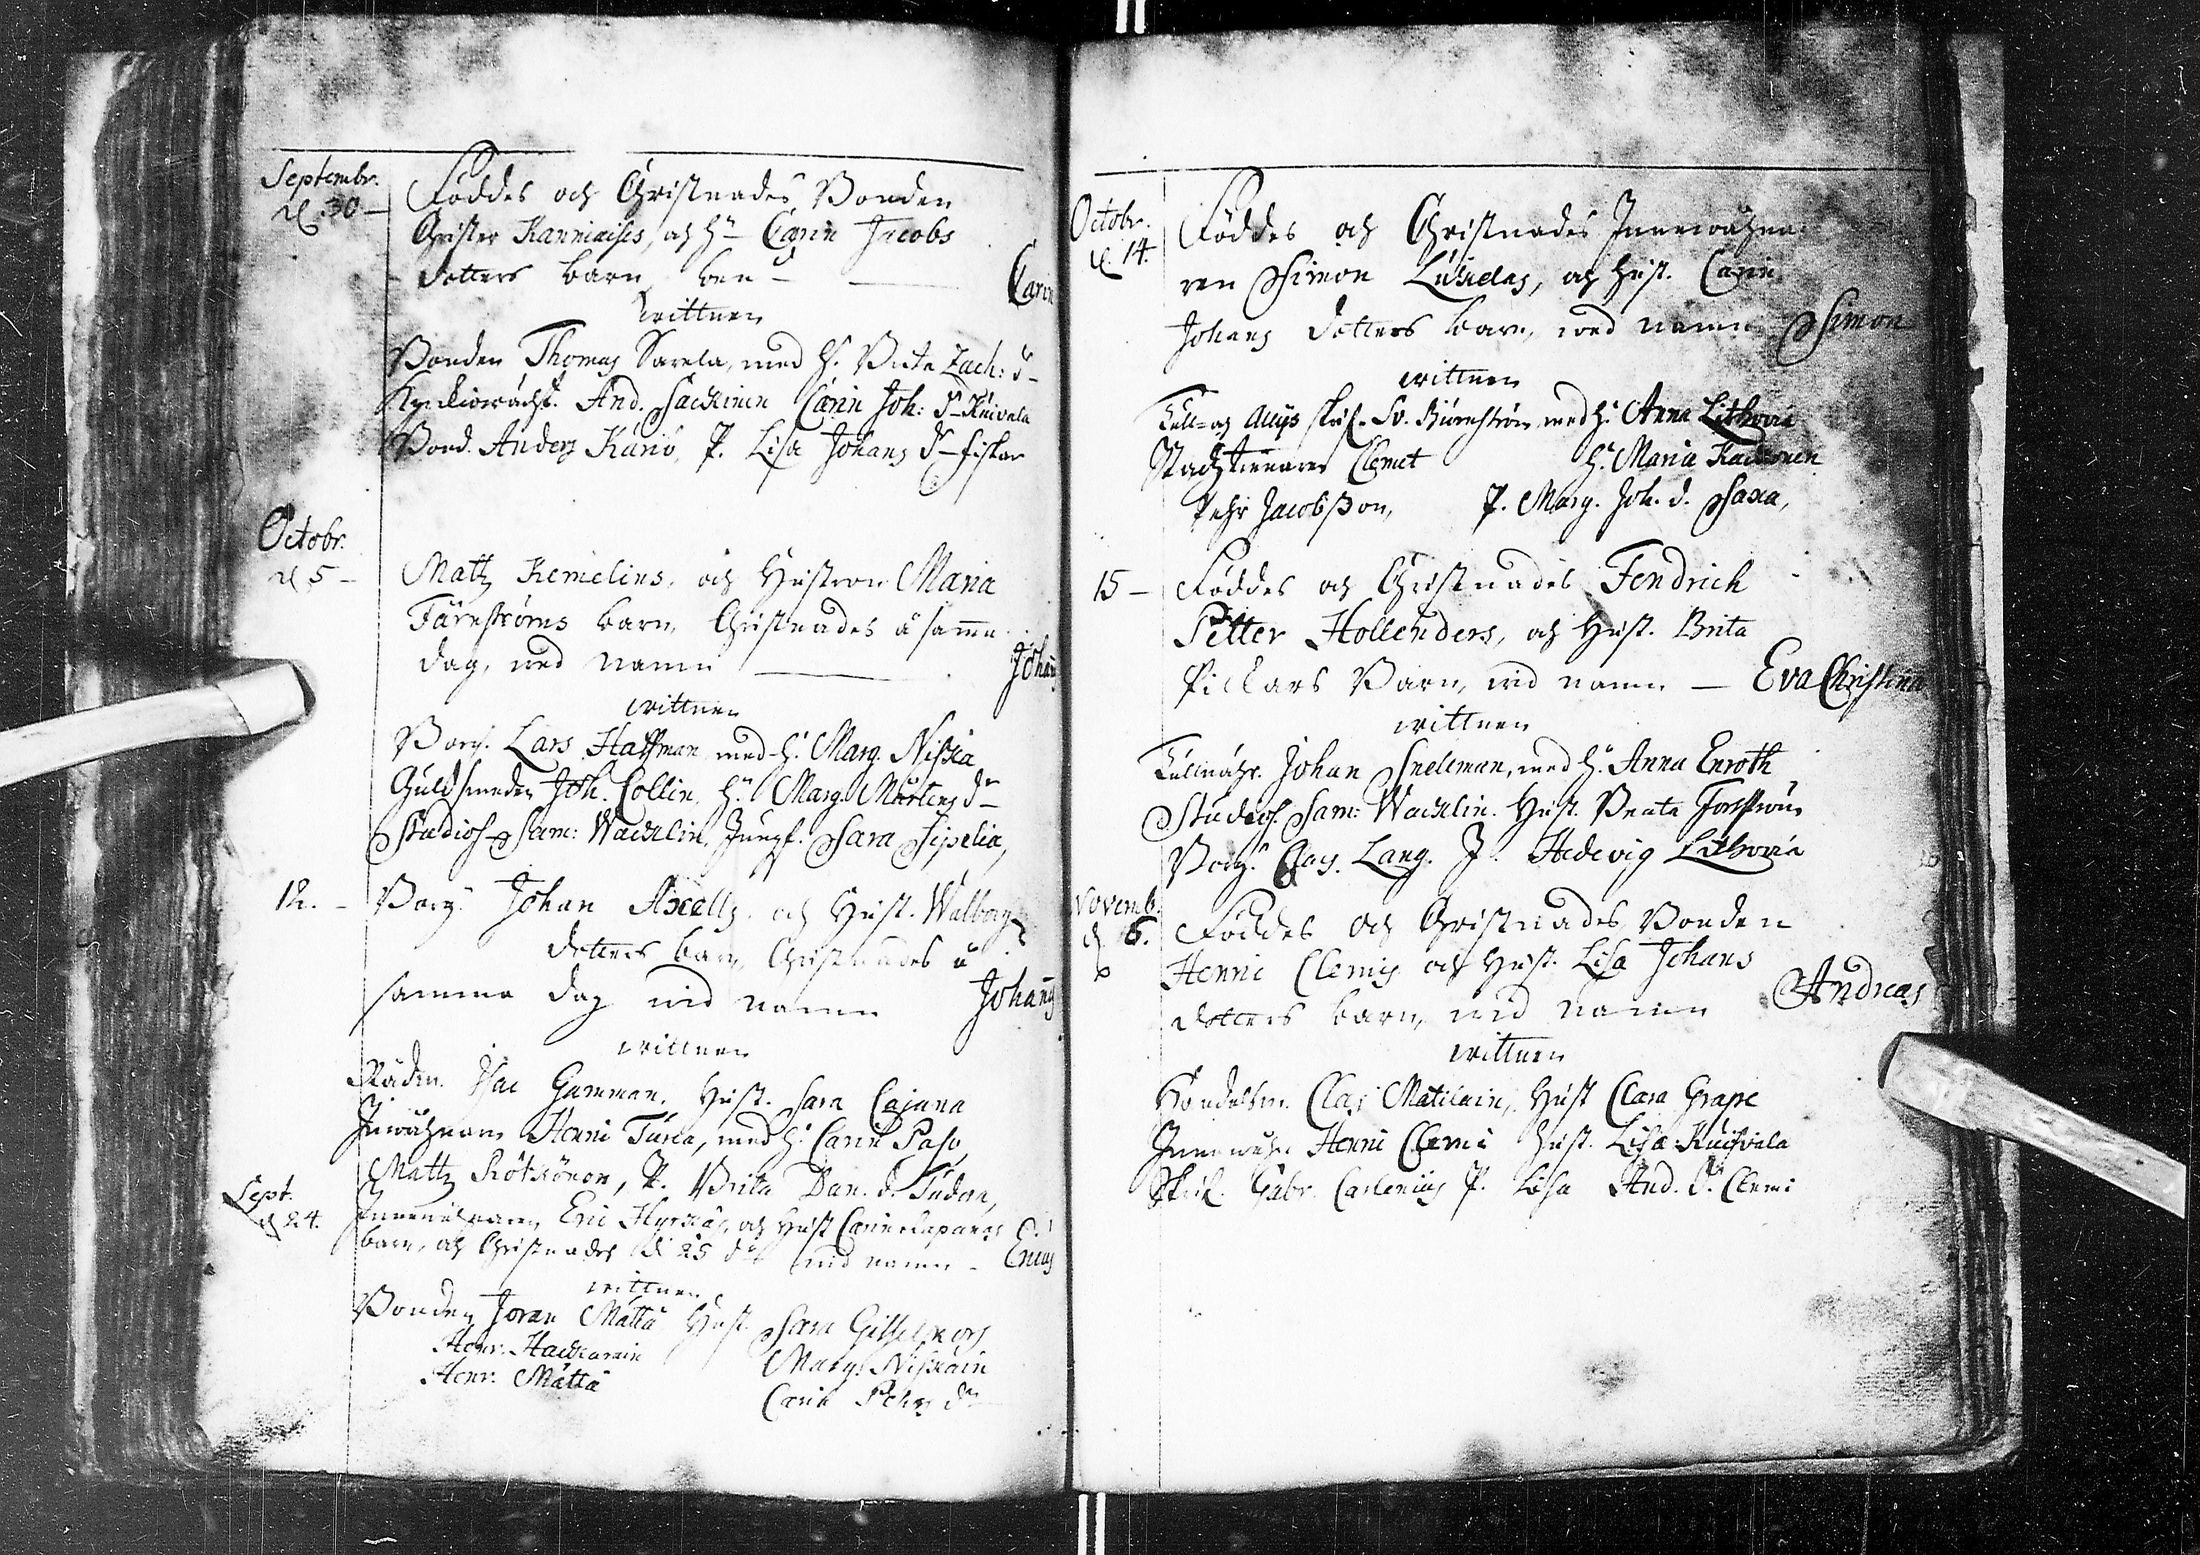 Septembr.
d. 30 — Föddes och Christnades Bonden
Christer Kanniaises, och h. Carin Jacobs
dotters barn, ben — Carin
wittnen
Bonden Thomas Sarela, med h. Brita Zach: d.
Kyrckiowächt. And. Sackinen Carin Joh: d. Kuivala
Bond. Anders Käriö, P. Lisa Johans d. fiskar
Octobr.
d. 5 — Matz Kemelius, och Hustron Maria
Färnströms barn, Christnades å samma
dag, med namn — Johannes
wittnen
Borg. Lars Haffman med h. Marg. Niska
Guldsmeden Joh. Collin, h. Marg. Mårtens d.
Studios. Sam: Wacklin, Jungf. Sara Sipelia,
12. — Borg. Johan Axells. och Hust. Walborg
dotters barn, Christnades å
samma dag med namn Johannes
wittnen
Rådm. Isac Gamman, Hust. Sara Cajana
Inwåhnare Henric Turia, med h. Carin Paso,
Matz Rötkönen, P. Brita Dan. d. Tudan,
Sept.
d. 24. Innewånaren Eric Hyrckäs, och Hust Carin
barn, och Christnades d. 25 d:o med namn — Ericus
wittnen
Bonden Joran Mattu Hust. Sara Gisselkors
Henr. Hackarain Marg. Niskain
Henr. Mätta Carin Pehrs dr
Octobr.
d. 14. Föddes och Christnades Innewåhna-
ren Simon Lukelas, och Hust. Carin
Johans dotters barn, med namn Simon
wittnen
Tull- och Accijs skrif. Sv. Biörnström, med h. Anna Lithovia
Stadztienaren Clemet h. Maria Kackinen
Pehr Jacobsson, P. Marg. Joh. d. Saxa,
15 — Föddes och Christnades Fendrich
Petter Hollenders, och Hust. Brita
Pickars Barn, med namn — Eva Christina
wittnen
Tullnär. Johan Snelman, med h. Anna Enroth
Studios. Sam: Wacklin. Hust. Beata Forsström
Borg. Clas. Lang. J. Hedevig Lithovia
Novemb.
d. 6. Föddes och Christnades Bonden
Henric Clemis och Hust. Lisa Johans
dotters barn, med namn Andreas
wittnen
Handelsm. Clas Matilain, Hust Clara Grape
Innewåhn. Henric Clemi Hust. Lisa Kuisvala
Skrif. Gabr. Carlenius P. Lisa And. d. Clemi